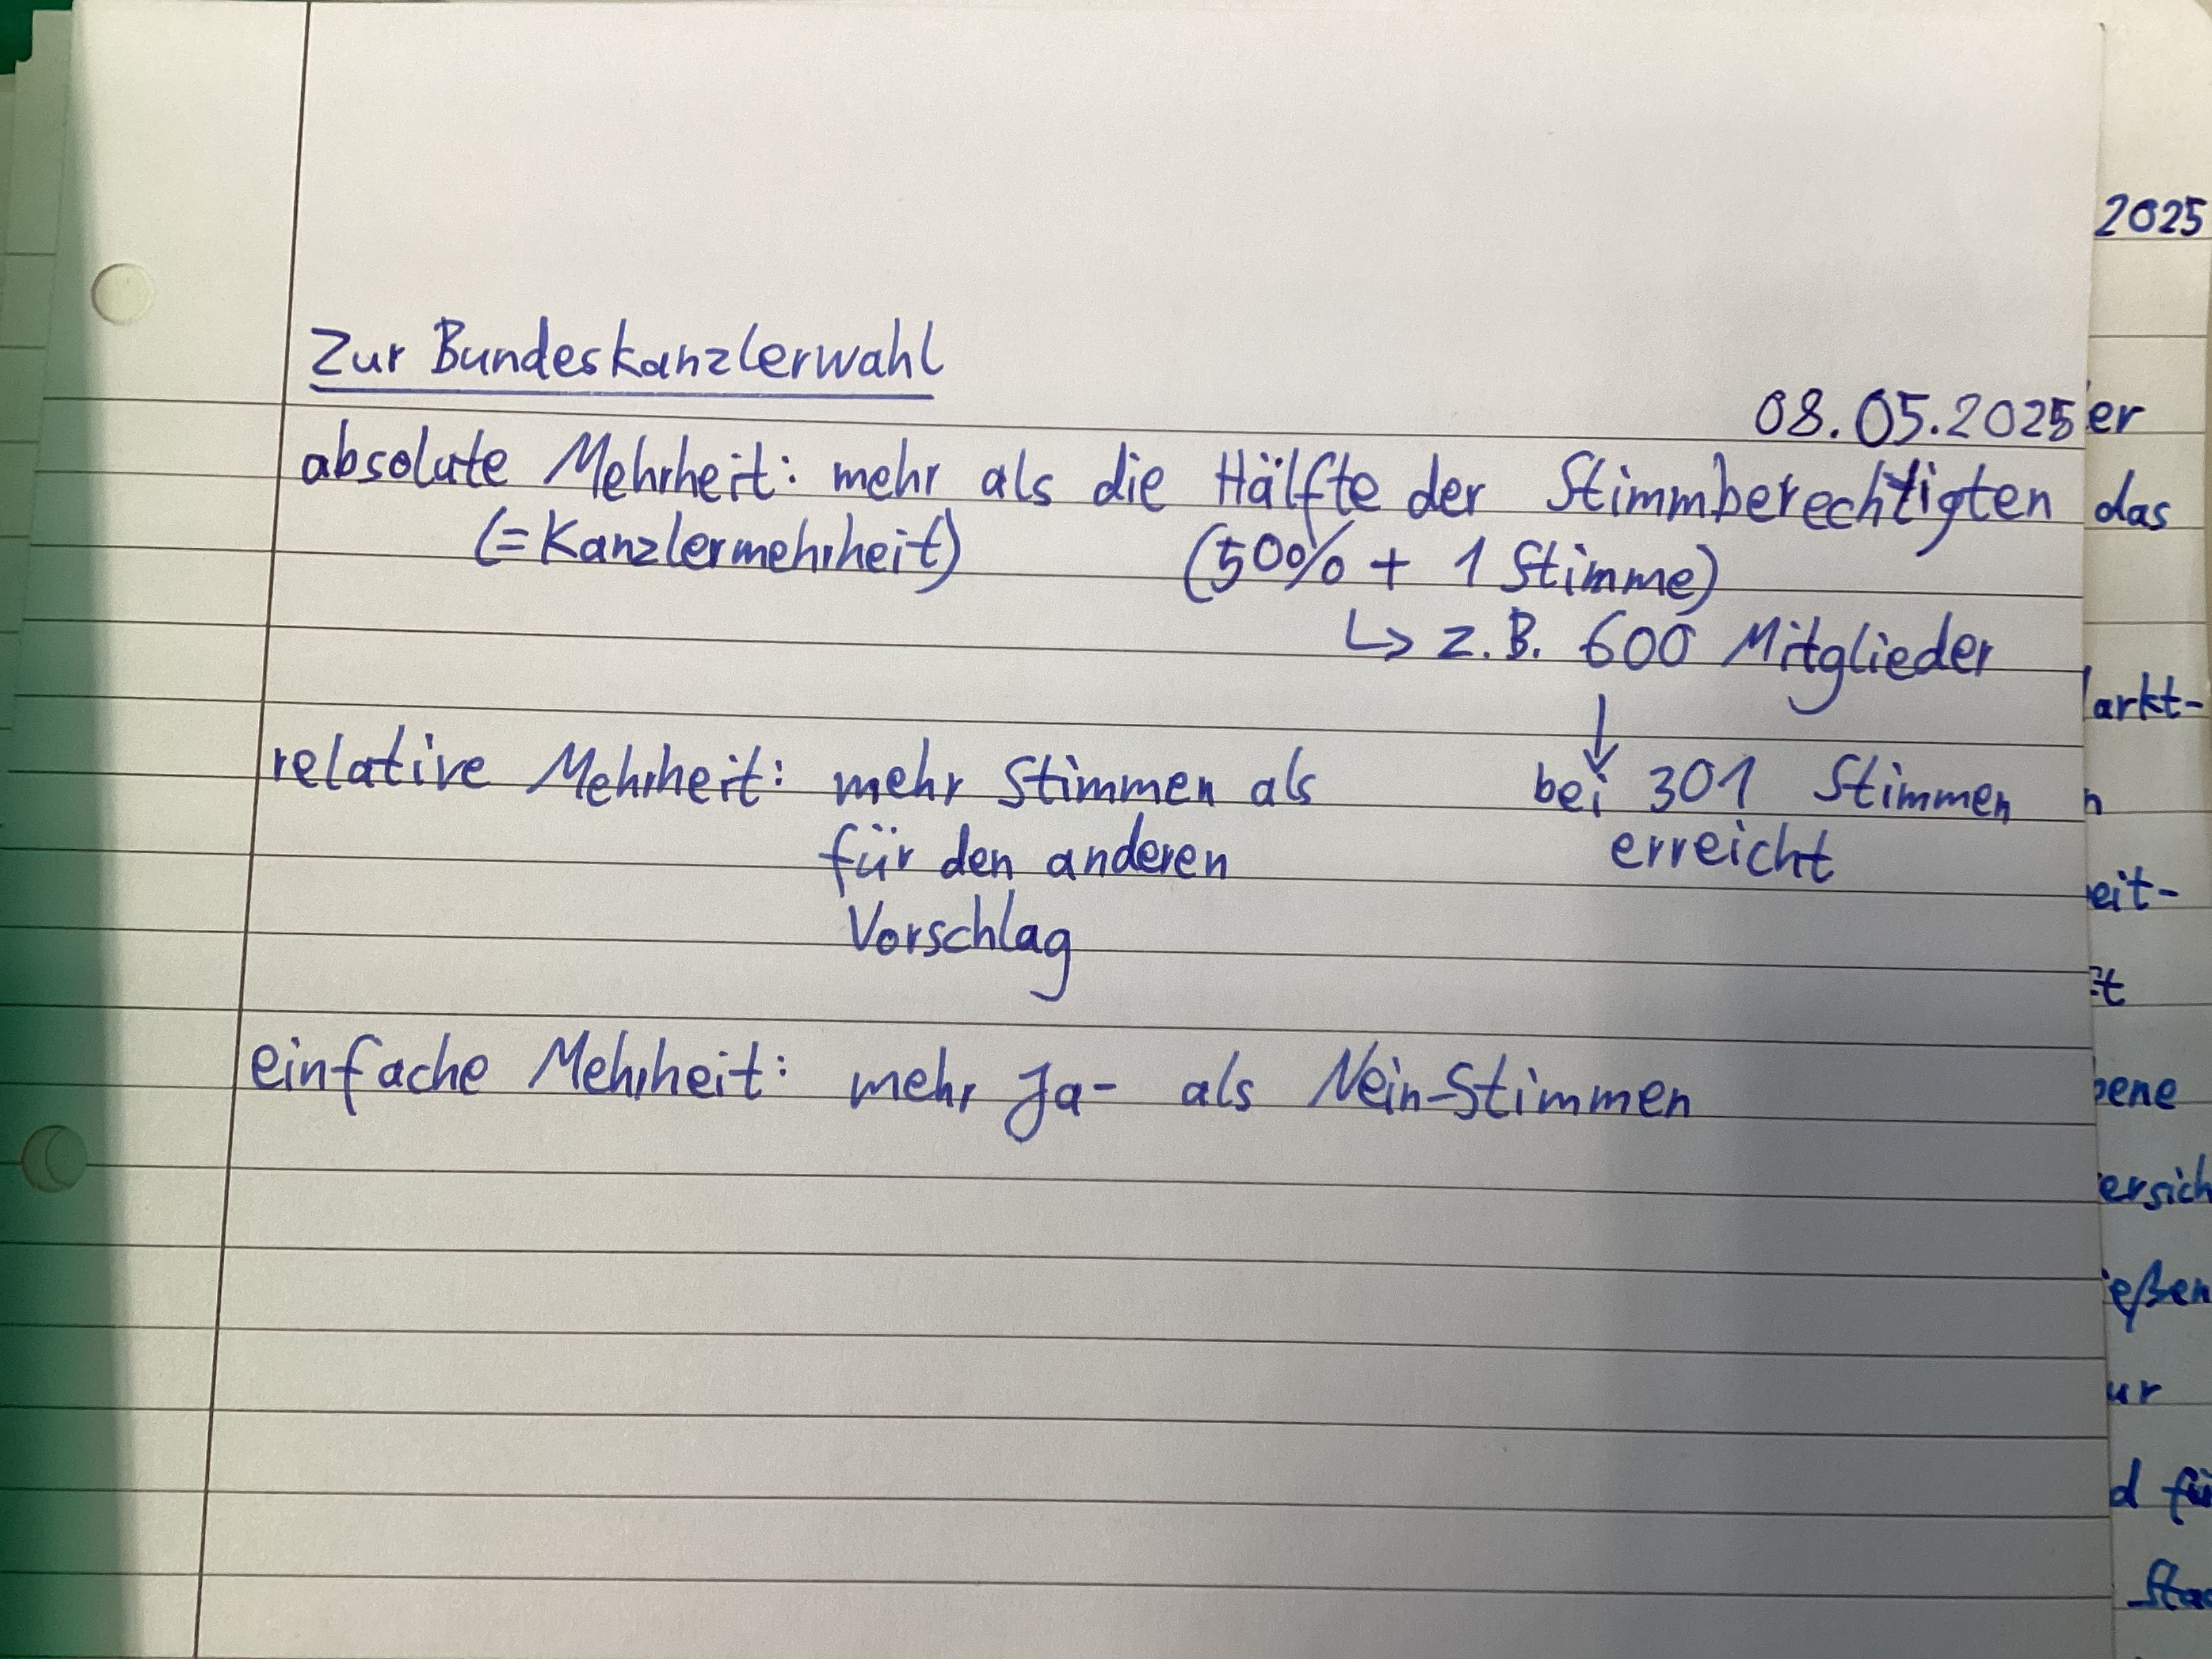 Zur Bundeskanzlerwahl
08.05.2025
absolute Mehrheit: mehr als die Hälfte der Stimmberechtigten
(=Kanzlermehrheit) (50% + 1 Stimme)
↳ z.B. 600 Mitglieder
↓
relative Mehrheit: mehr Stimmen als bei 301 Stimmen
für den anderen erreicht
Vorschlag
einfache Mehrheit: mehr Ja- als Nein-Stimmen
2025
er
das
arkt-
n
eit-
t
ene
ersich
eßen
ur
d fü